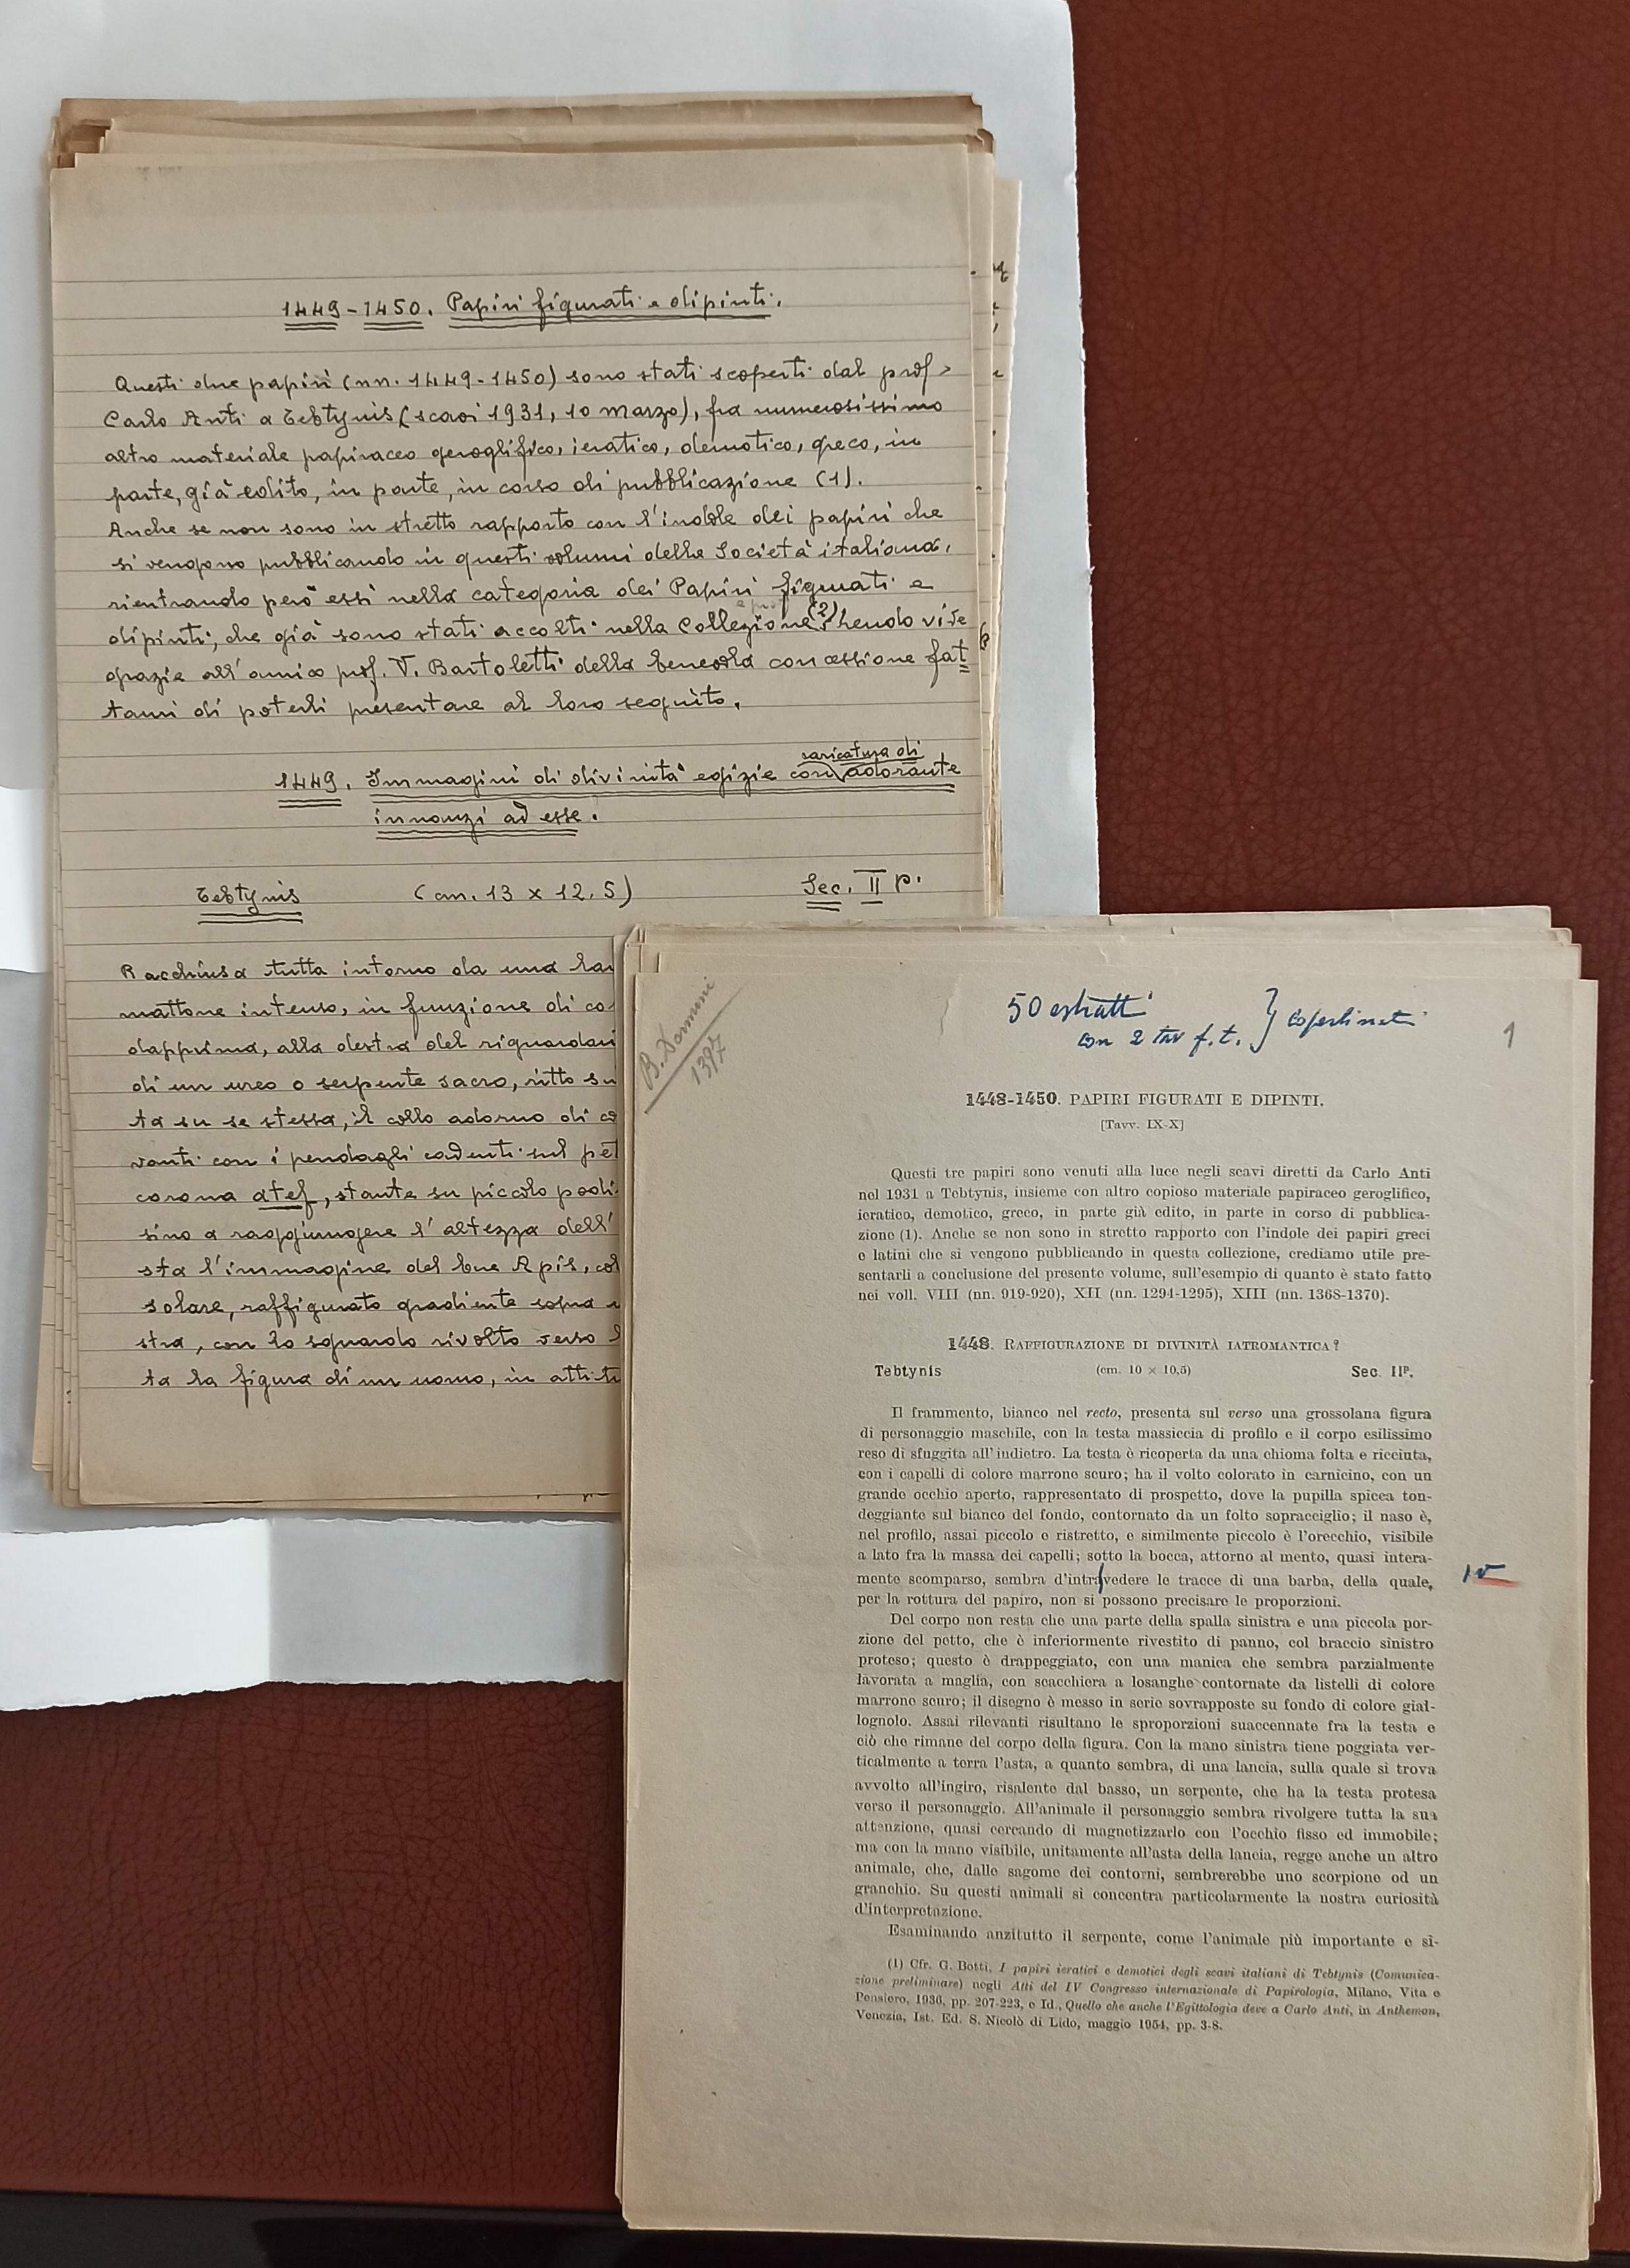 1449-1450. Papiri figurati e dipinti.
Questi due papiri (nn. 1449-1450) sono stati scoperti dal prof.
Carlo Anti a Tebtynis (scavi 1931, 10 marzo), fra numerosissimo
altro materiale papiraceo geroglifico, ieratico, demotico, greco, in
parte, già edito, in parte, in corso di pubblicazione (1).
Anche se non sono in stretto rapporto con l'indole dei papiri che
si vengono pubblicando in questi volumi della Società italiana,
rientrando però essi nella categoria dei Papiri figurati e
dipinti, che già sono stati accolti nella Collezione (2),
grazie all'amico prof. V. Bartoletti della benevola concessione fat
tami di poterli presentare al loro seguito.
caricatura di
1449. Immagini di divinità egizie con adorante
innanzi ad esse.
Tebtynis (cm. 13 x 12,5) Sec. II p.
Racchiusa tutta intorno da una
mattone intenso, in funzione di co
dapprima, alla destra del riguardan
di un ureo o serpente sacro, ritto su
ta su se stessa, il collo adorno di co
vanti con i pendagli cadenti sul pet
corona atef, stante su piccolo podi
sino a raggiungere l'altezza dell'
sta l'immagine del bue Apis, col
solare, raffigurato gradiente sopra
stra, con lo sguardo rivolto verso
ta la figura di un uomo, in atti
1397
50 estratti
con 2 tav f.t. } copertinati
1
1448-1450. PAPIRI FIGURATI E DIPINTI.
[Tavv. IX-X]
Questi tre papiri sono venuti alla luce negli scavi diretti da Carlo Anti
nel 1931 a Tebtynis, insieme con altro copioso materiale papiraceo geroglifico,
ieratico, demotico, greco, in parte già edito, in parte in corso di pubblica-
zione (1). Anche se non sono in stretto rapporto con l'indole dei papiri greci
e latini che si vengono pubblicando in questa collezione, crediamo utile pre-
sentarli a conclusione del presente volume, sull'esempio di quanto è stato fatto
nei voll. VIII (nn. 919-920), XII (nn. 1294-1295), XIII (nn. 1368-1370).
1448. RAFFIGURAZIONE DI DIVINITÀ IATROMANTICA?
Tebtynis (cm. 10 × 10,5) Sec. IIp.
Il frammento, bianco nel recto, presenta sul verso una grossolana figura
di personaggio maschile, con la testa massiccia di profilo e il corpo esilissimo
reso di sfuggita all'indietro. La testa è ricoperta da una chioma folta e ricciuta,
con i capelli di colore marrone scuro; ha il volto colorato in carnicino, con un
grande occhio aperto, rappresentato di prospetto, dove la pupilla spicca ton-
deggiante sul bianco del fondo, contornato da un folto sopracciglio; il naso è,
nel profilo, assai piccolo e ristretto, e similmente piccolo è l'orecchio, visibile
a lato fra la massa dei capelli; sotto la bocca, attorno al mento, quasi intera-
mente scomparso, sembra d'intravedere le tracce di una barba, della quale,
per la rottura del papiro, non si possono precisare le proporzioni.
Del corpo non resta che una parte della spalla sinistra e una piccola por-
zione del petto, che è inferiormente rivestito di panno, col braccio sinistro
proteso; questo è drappeggiato, con una manica che sembra parzialmente
lavorata a maglia, con scacchiera a losanghe contornate da listelli di colore
marrone scuro; il disegno è messo in serie sovrapposte su fondo di colore gial-
lognolo. Assai rilevanti risultano le sproporzioni suaccennate fra la testa e
ciò che rimane del corpo della figura. Con la mano sinistra tiene poggiata ver-
ticalmente a terra l'asta, a quanto sembra, di una lancia, sulla quale si trova
avvolto all'ingiro, risalente dal basso, un serpente, che ha la testa protesa
verso il personaggio. All'animale il personaggio sembra rivolgere tutta la sua
attenzione, quasi cercando di magnetizzarlo con l'occhio fisso ed immobile;
ma con la mano visibile, unitamente all'asta della lancia, regge anche un altro
animale, che, dalle sagome dei contorni, sembrerebbe uno scorpione od un
granchio. Su questi animali si concentra particolarmente la nostra curiosità
d'interpretazione.
Esaminando anzitutto il serpente, come l'animale più importante e si-
(1) Cfr. G. Botti, I papiri ieratici e demotici degli scavi italiani di Tebtynis (Comunica-
zione preliminare) negli Atti del IV Congresso internazionale di Papirologia, Milano, Vita e
Pensiero, 1936, pp. 207-223, e Id., Quello che anche l'Egittologia deve a Carlo Anti, in Anthemon,
Venezia, Ist. Ed. S. Nicolò di Lido, maggio 1954, pp. 3-8.